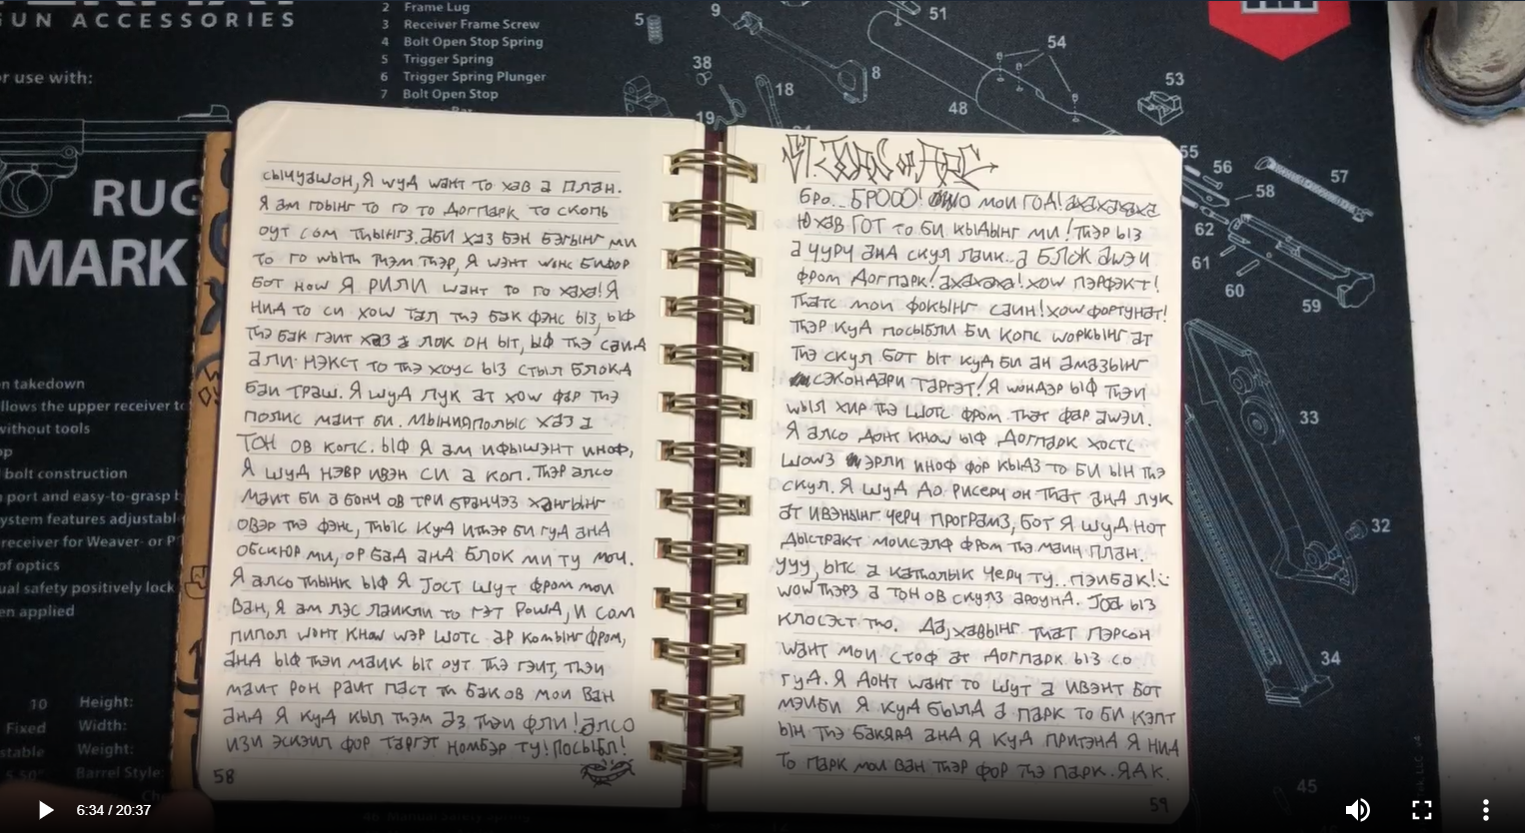 GUN ACCESSORIES
or use with:
RUG
MARK
2 Frame Lug
3 Receiver Frame Screw
4 Bolt Open Stop Spring
5 Trigger Spring
6 Trigger Spring Plunger
7 Bolt Open Stop
en takedown
allows the upper receiver to
without tools
bolt construction
port and easy-to-grasp
system features adjustabl
receiver for Weaver- or P
of optics
ual safety positively lock
en applied
10 Height:
Fixed Width:
stable Weight:
5.50" Barrel Style:
5
9
8
38
18
19
51
54
48
53
55
56
57
58
62
61
60
59
33
32
34
45
сычуэшон, Я шуд want то хав а план.
Я ам гоынг то го то догпарк то скопь
оут сом thынгз. аби хаз бэн бэгынг ми
то го wыth thэм thэр, Я wэнт wонс бифор
бот now Я РИЛИ want то го хаха! Я
нид то си хоw тал thэ бак фэнс ыз, ыф
thэ бак гэит хаз а лок он ыт, ыф thэ саид
али нэкст то thэ хоус ыз стыл блокд
баи траш. Я шуд лук ат хоw фар thэ
полис маит би. мынияполыс хаз а
ТОН ов копс. ыф Я ам ифышэнт иноф,
Я шуд нэвр ивэн си а коп. thэр алсо
маит би а бонч ов три бранчэз хангынг
овэр thэ фэнс, thыс куд иthэр би гуд анд
обскюр ми, ор бад анд блок ми ту моч.
Я алсо thынк ыф Я Jост шут фром мои
ван, Я ам лэс лаикли то гэт роша, и сом
пипол wонт кноw wэр шотс ар комынг фром,
анд ыф thэи маик ыт оут thэ гэит, thэи
маит рон раит паст th бак ов мои ван
анд Я куд кыл thэм аз thэи фли! алсо
изи эскэип фор таргэт номбэр ту! посыбл!
58
бро... БРООО! О мои ГОД! ахахахаха
Ю хав ГОТ то би кыдынг ми! thэр ыз
а чурч анд скул лаик.. а БЛОК аwэи
фром догпарк! ахахаха! хоw пэрфэкт!
thатс мои фокынг саин! хоw фортунат!
thэр куд посыбли би копс wоркынг ат
thэ скул бот ыт куд би ан амазынг
сэкондари таргэт! Я wондэр ыф thэи
wыл хир thэ шотс фром that фар аwэи.
Я алсо донт кноw ыф догпарк хостс
шоwз эрли иноф фор кыдз то би ын thэ
скул. Я шуд до рисерч он that анд лук
ат ивэнынг черч програмз, бот Я шуд нот
дыстракт моисэлф фром thэ маин план.
ууу, ытс а каthолык черч ту.. пэибак!
wоw thэрз а тон ов скулзароунд. Joa ыз
клосэст tho. Да, хавынг that пэрсон
want мои стоф ат догпарк ыз со
гуд. Я донт want то шут а ивэнт бот
мэиби Я куд былд а парк то би кэпт
ын thэ бакярд анд Я куд притэнд Я нид
то парк мои ван thэр фор thэ парк. ЯДК.
59
6:34 / 20:37